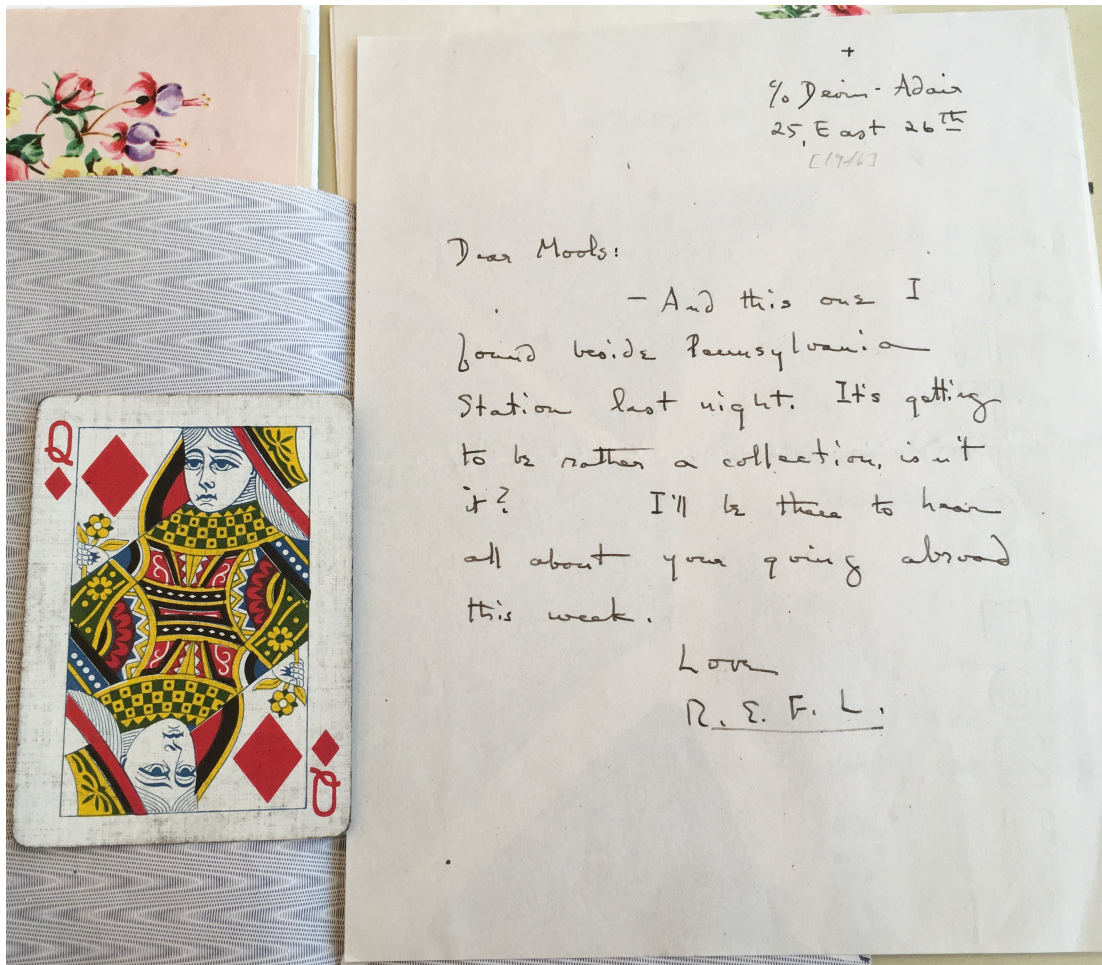 +
c/o Devin-Adair
25, East 26th
[1946]
Dear Mools:
– And this one I
found beside Pennsylvania
Station last night. It's getting
to be rather a collection, isn't
it? I'll be there to hear
all about your going abroad
this week.
Love
R. E. F. L.
Q
Q